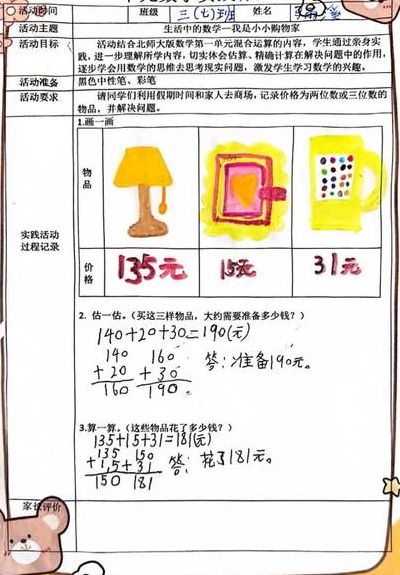 活动时间 班级 三(七)班 姓名
活动主题 生活中的数学—我是小小购物家
活动目标 活动结合北师大版数学第一单元混合运算的内容，学生通过亲身实
践，进一步理解所学内容，切实体会估算、精确计算在解决问题中的作用，
逐步学会用数学的思维去思考现实问题，激发学生学习数学的兴趣。
活动准备 黑色中性笔、彩笔
活动要求 请同学们利用假期时间和家人去商场，记录价格为两位数或三位数的
物品，并解决问题。
实践活动
过程记录
1.画一画
物品
价格 135元 15元 31元
2. 估一估。（买这三样物品，大约需要准备多少钱？）
140+20+30=190(元)
140 160 答:准备190元。
+20 +30
160 190
3.算一算。（这些物品花了多少钱？）
135+15+31=181(元)
135 150
+15 +31 答:花了181元。
150 181
家长评价